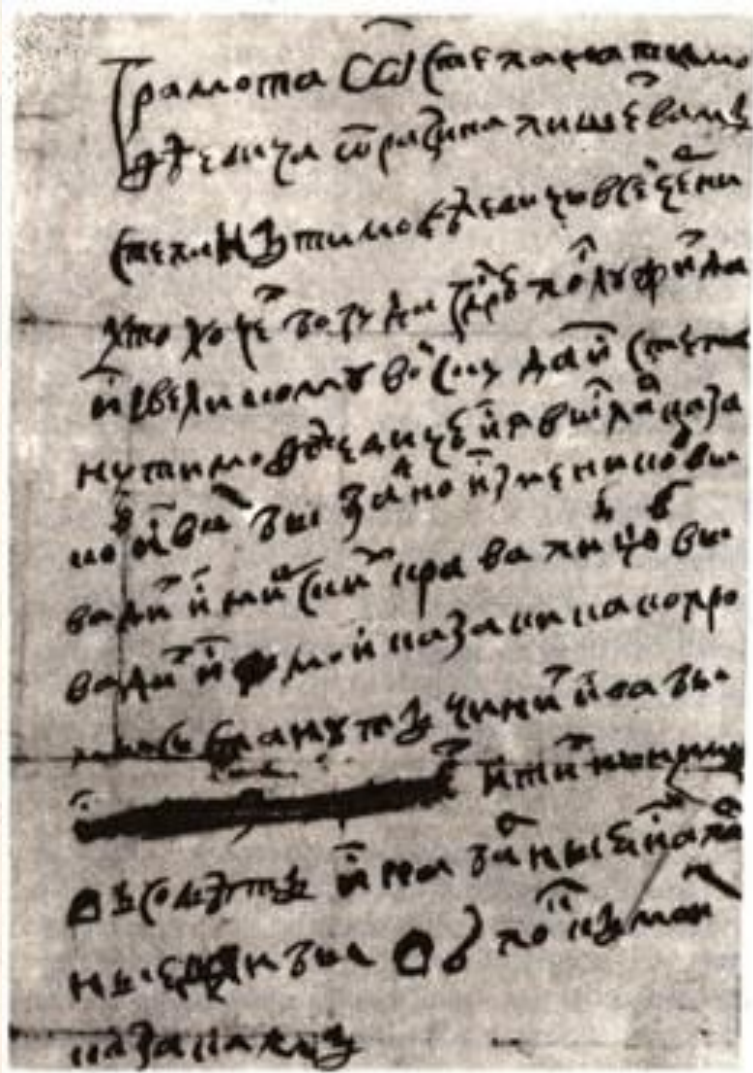 Грамота ѿ Степана Тимо
ѳѣевича ѿ Разина пишет вамъ
Степанъ Тимоѳѣевичь всей черни
хто хочет богу да гсдрю послужит да
и великому войску да и Степа
ну Тимоѳѣевичю и я выслал каза
ков и вам бы заодно изменников вы
вадит и мирских кравапивцов вы
вадит и мои казаки како про
мысь станутъ чинит и вам бы
итит к ним
въ советъ и кабалные и апал
ные шли бы в полкъ к моим
казакамъ